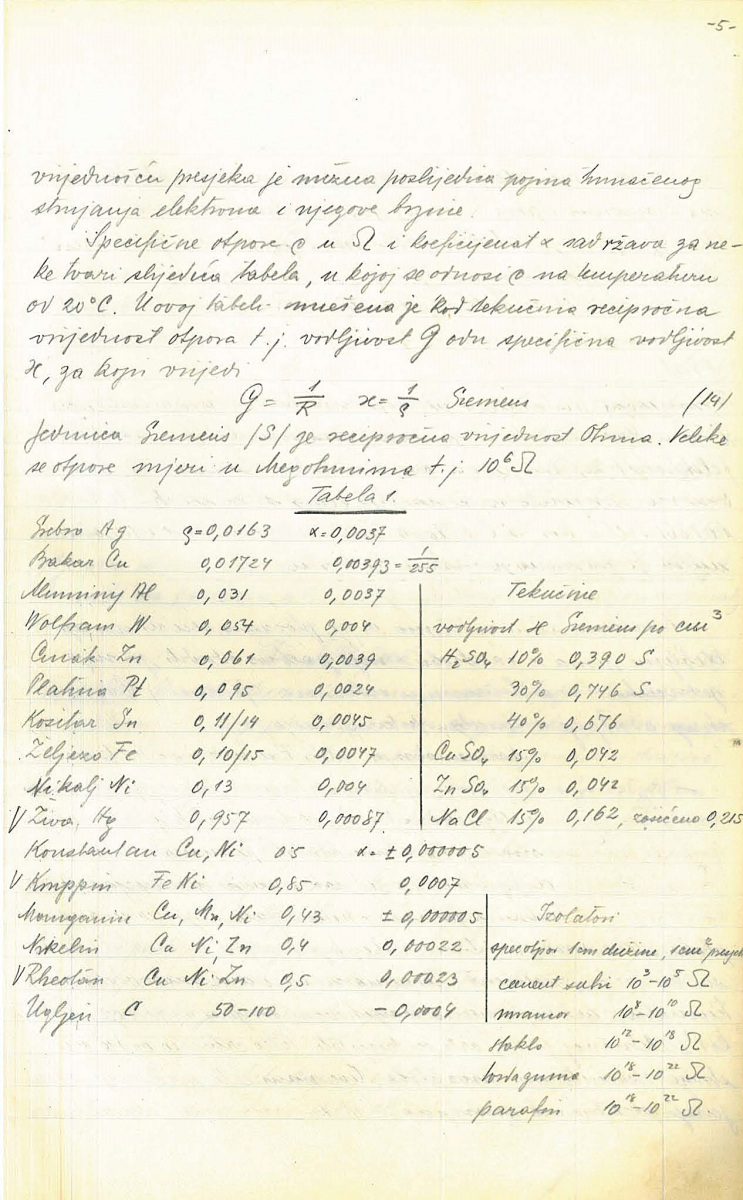 -5-
vrijednošću presjeka je nužna poslijedica pojma tumačenog
strujanja elektrona i njegove brzine.
Specifične otpore ρ u Ω i koeficijenat α sadržava za ne-
ke tvari slijedića tabela, u kojoj se odnosi ρ na temperaturu
od 20°C. U ovoj tabeli unešena je kod tekućina recipročna
vrijednost otpora t.j. vodljivost G odn specifična vodljivost
ϰ, za koju vrijedi
G = 1/R ϰ = 1/ρ Siemens /14/
Jedinica Siemens /S/ je recipročna vrijednost Ohma. Velike
se otpore mjeri u Megohmima t.j. 10⁶ Ω
Tabela 1.
Srebro Ag ρ=0,0163 α=0,0037
Bakar Cu 0,01724 0,00393=1/255
Aluminij Al 0,031 0,0037 Tekućine
Wolfram W 0,054 0,004 vodljivost ϰ Siemens po cm³
Cinak Zn 0,061 0,0039 H₂SO₄ 10% 0,390 S
Platina Pt 0,095 0,0024 30% 0,746 S
Kositar Sn 0,11/14 0,0045 40% 0,676
Željezo Fe 0,10/15 0,0047 CuSO₄ 15% 0,042
Nikalj Ni 0,13 0,004 ZnSO₄ 15% 0,042
V Živa Hg 0,957 0,00087 NaCl 15% 0,162, zasićeno 0,215
Konstantan Cu, Ni 05 α=±0,000005
V Kruppin Fe Ni 0,85 0,0007
Manganin Cu, Mn, Ni 0,43 ±0,000005 Izolatori
Nikelin Cu Ni, Zn 0,4 0,00022 spec otpor 1cm dužine, 1cm² presjek
V Rheotan Cu Ni Zn 0,5 0,00023 cement suhi 10³-10⁵ Ω
Ugljen C 50-100 -0,0004 mramor 10⁸-10¹⁰ Ω
staklo 10¹²-10¹⁸ Ω
tvrda guma 10¹⁸-10²² Ω
parafin 10¹⁸-10²² Ω.